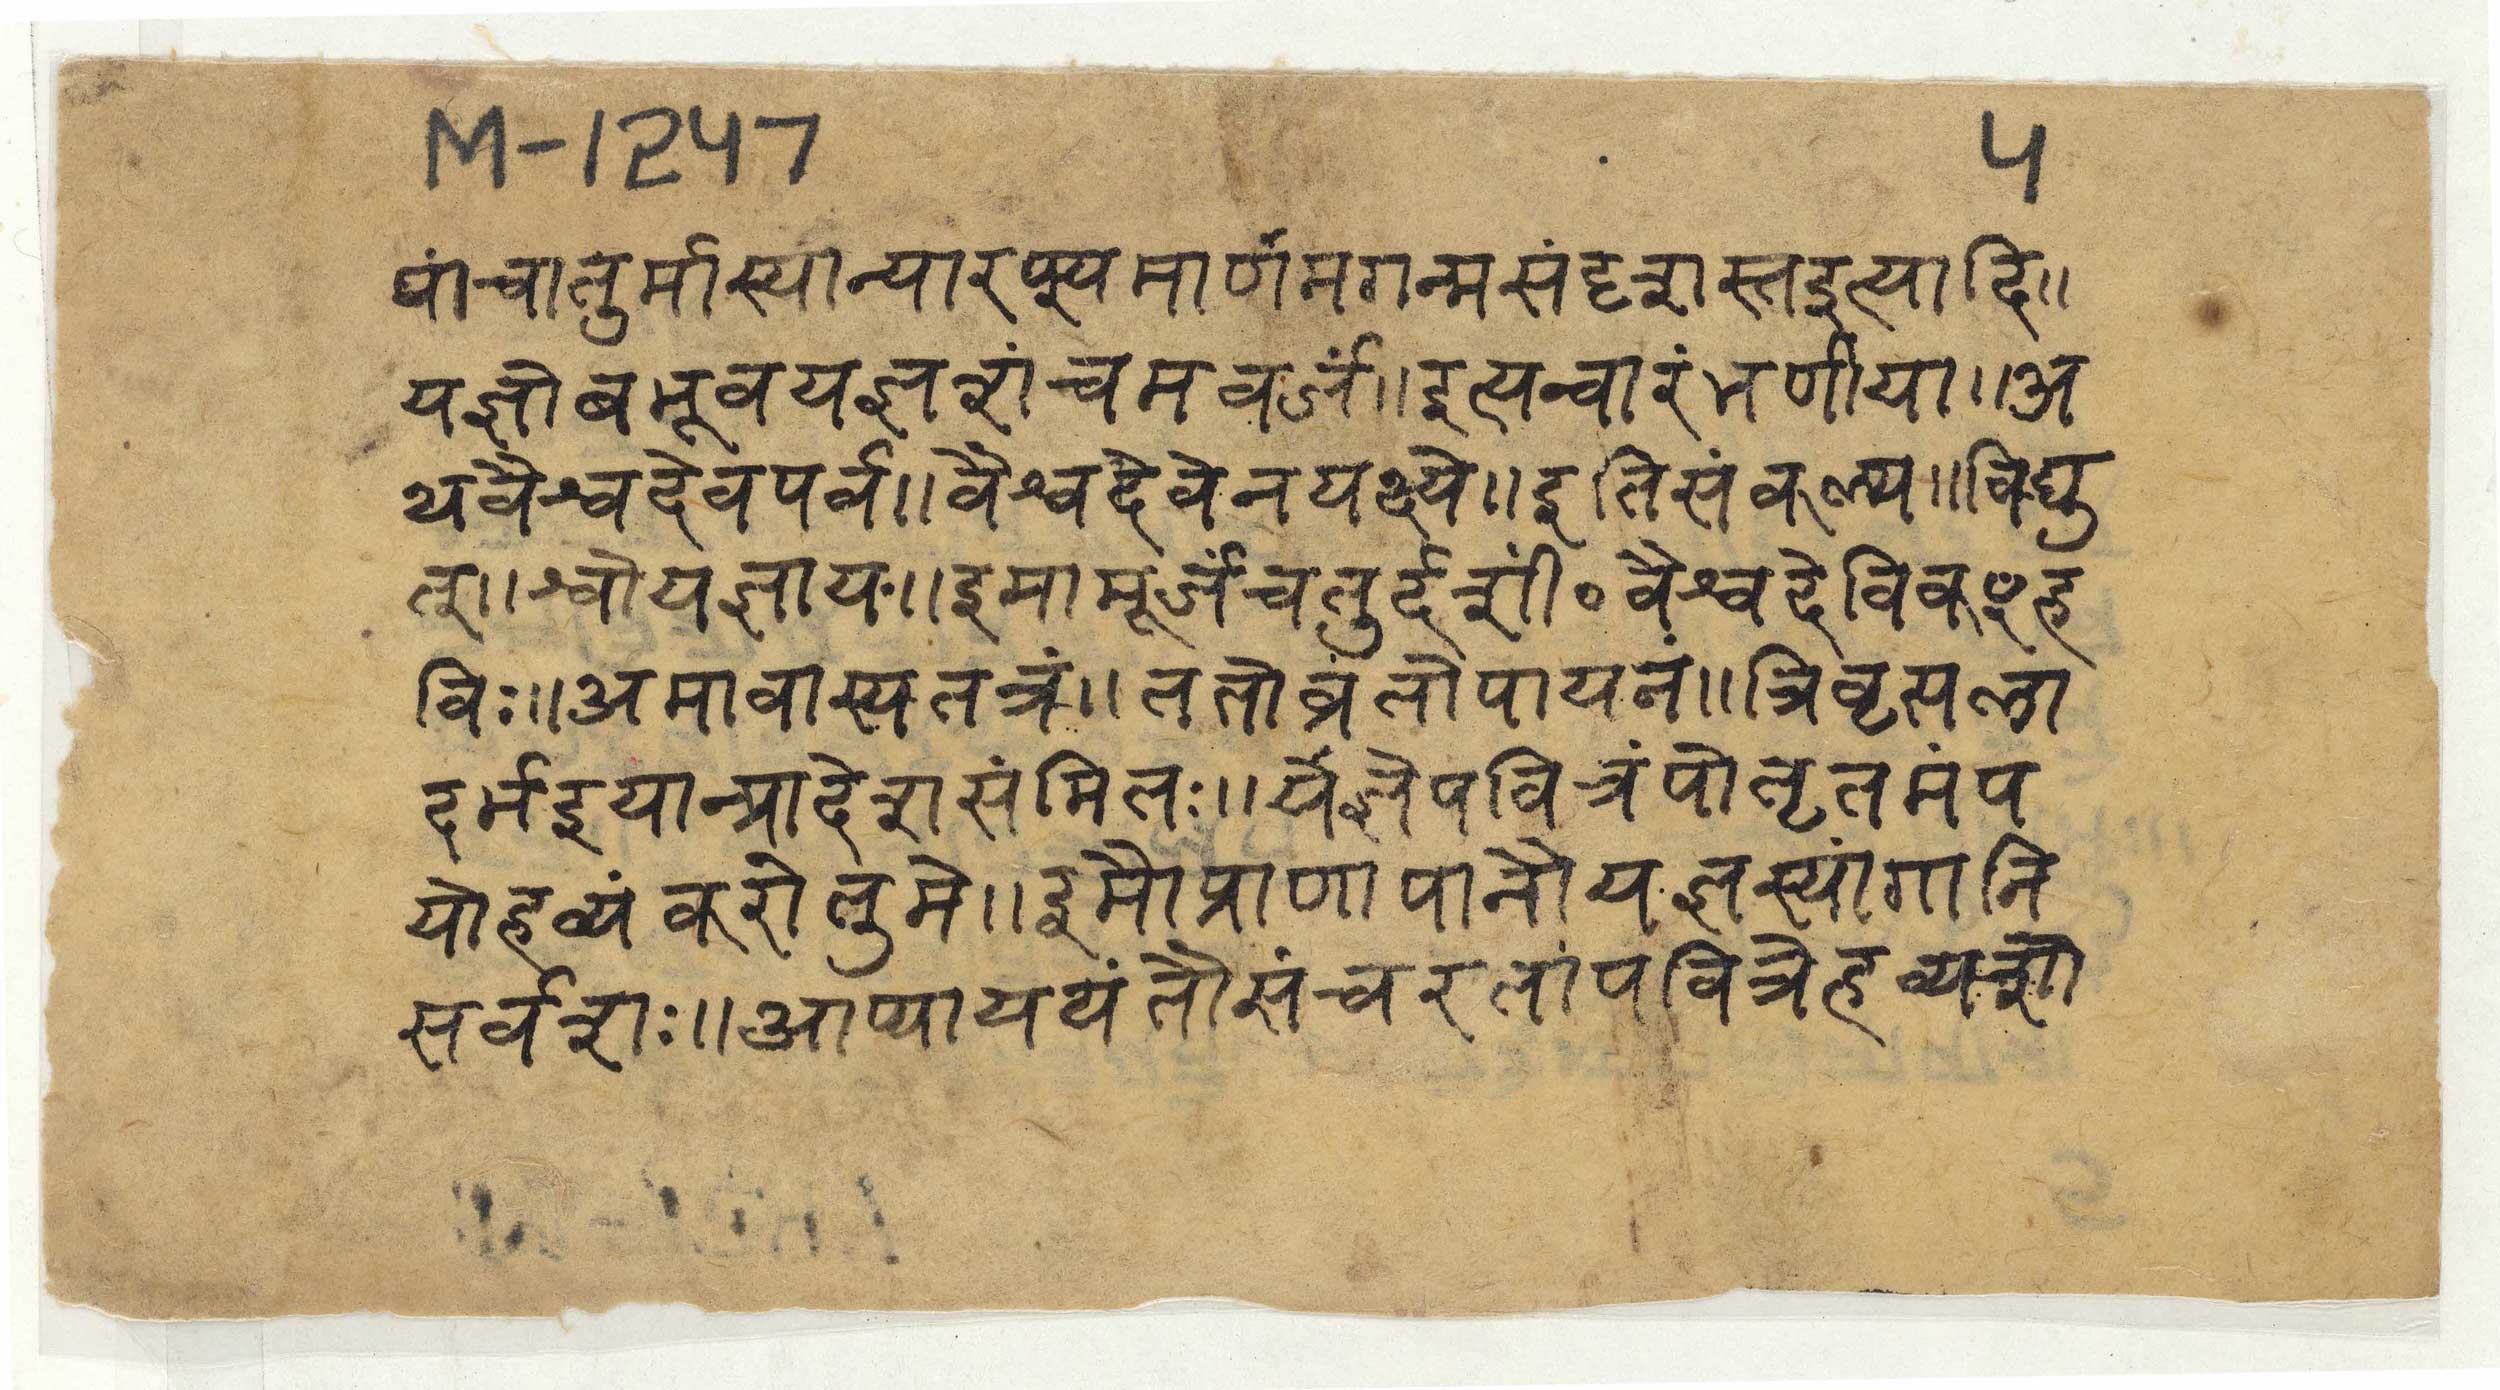 M-1247 ५
षांचातुर्मास्यान्यारप्स्यमार्णमगन्मसंदृशस्तइत्यादि॥
यज्ञोबभूवयज्ञशंचमवर्जं॥इत्यन्वारंभणीया॥अ
थवैश्वदेवपर्व॥वैश्वदेवेनयक्ष्ये॥इतिसंकल्प्य॥विद्यु
त्॥श्वोयज्ञाय॥इमामूर्जंचतुर्दशीं॰वैश्वदेविकꣳह
विः॥अमावास्यतन्त्रं॥ततोव्रंतोपायनं॥त्रिवृत्पला
दर्भइयान्प्रादेशसंमितः॥र्येज्ञेपवित्रंपोतृतमंप
योहव्यंकरोतुमे॥इमौप्राणापानौयज्ञस्यांगानि
सर्वशः॥आप्याययंतौसंचरतांपवित्रेहव्यशो